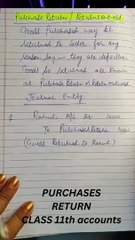 Purchase Return / Return outward
Goods Purchased may be
returned to seller for any
reason, say - they are defective.
Goods so returned are known
as Purchase Return or Return outward
Journal Entry
Rahul A/c Dr 1000
To Purchases Return 1000
(Goods Returned to Rahul)
PURCHASES
RETURN
CLASS 11th accounts